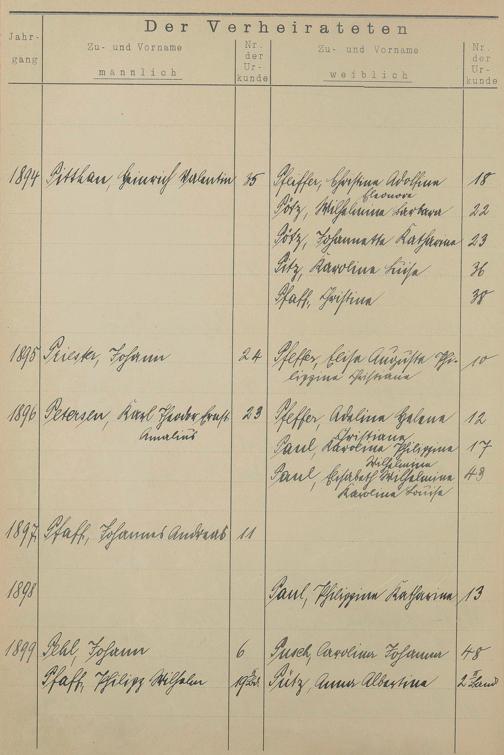 Der Verheirateten
Jahr-
gang
Zu- und Vorname
männlich
Nr.
der
Ur-
kunde
Zu- und Vorname
weiblich
Nr.
der
Ur-
kunde
1894 Pitthan, Heinrich Valentin 35 Pfeiffer, Christine Adolfine 18
Eleonore
Götz, Wilhelmine Barbara 22
Götz, Johannette Katharine 23
Pitz, Karoline Luise 36
Pfaff, Christine 38
1895 Johann 24 Pfeffer, Elise Auguste Phi- 10
lippine Christiane
1896 Petersen, Karl Theodor Ernst 23 Pfeffer, Adeline Helene 12
Amalius
Christiane
Paul, Karoline Philippine 17
Wilhelmine
Paul, Elisabeth Wilhelmine 43
Karoline Louise
1897 Pfaff, Johannes Andreas 11
1898 Paul, Philippine Katharine 13
1899 Pehl, Johann 6 Pusch, Carolina Johanna 48
Pfaff, Philipp Wilhelm 19 Pütz, Anna Albertine 2